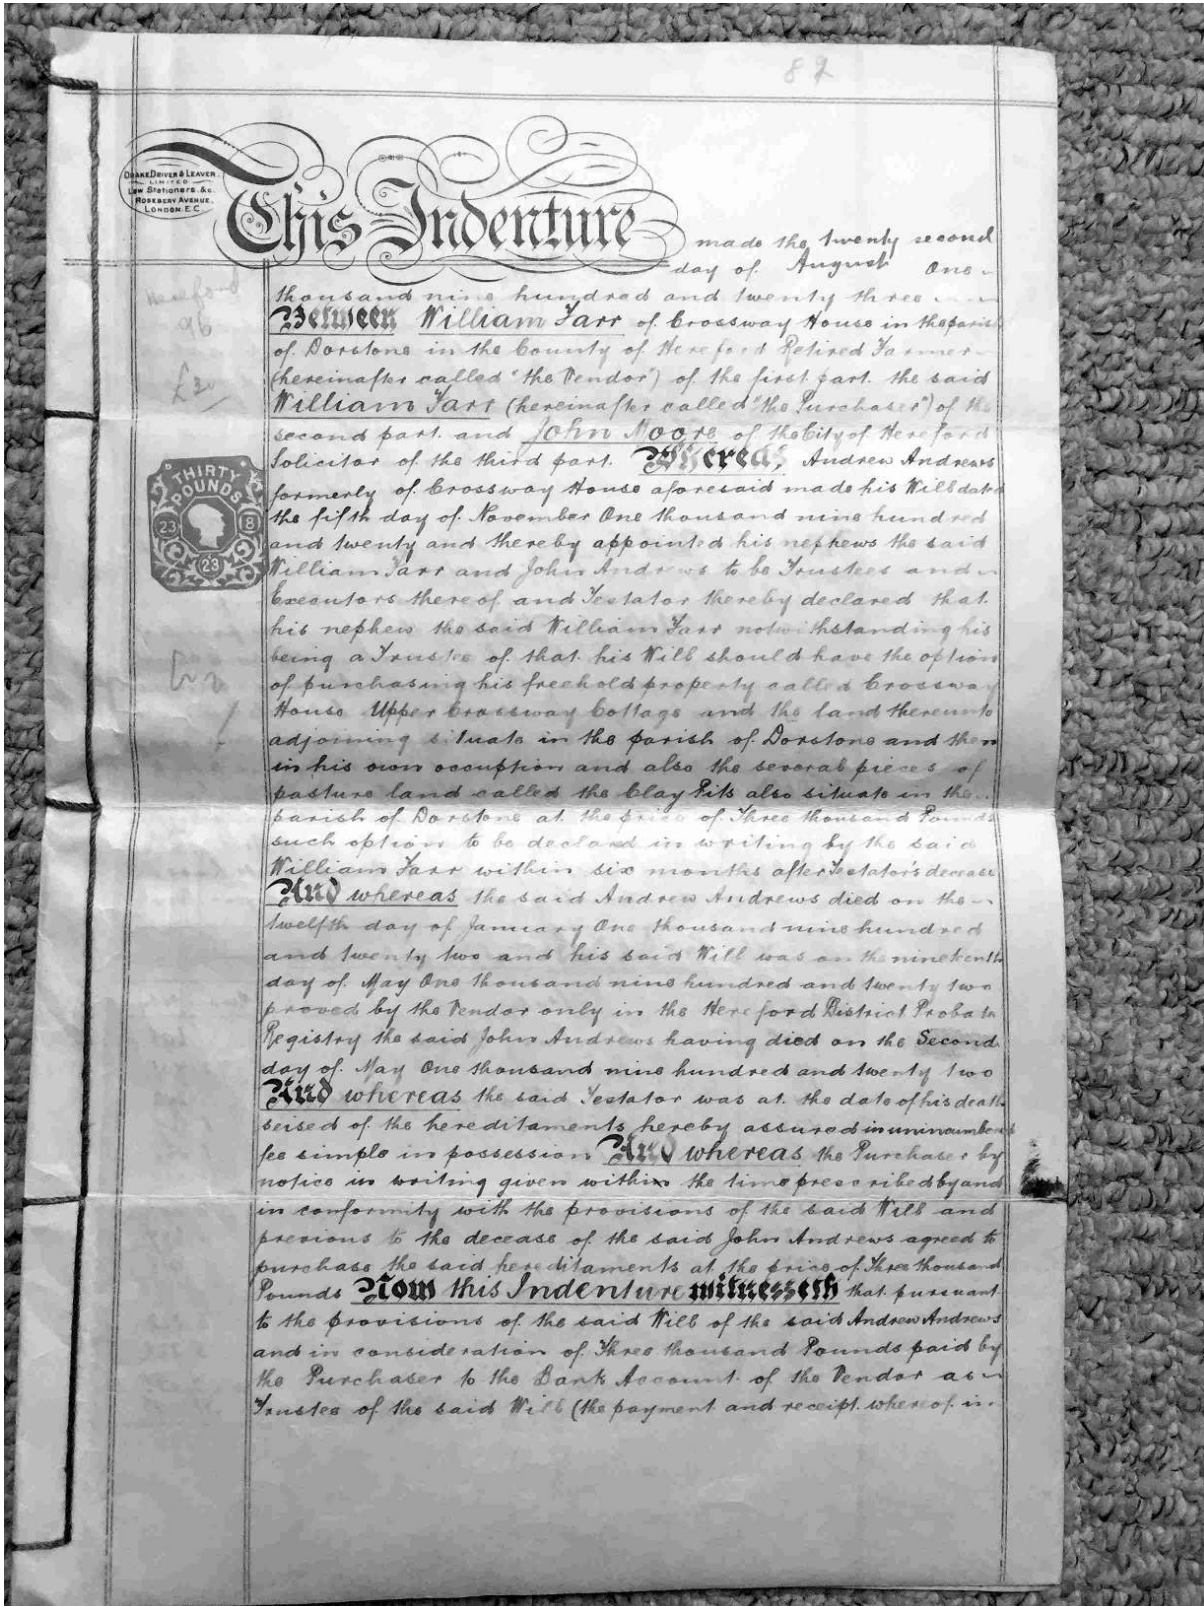 82
DRAKE DRIVER & LEAVER
LIMITED
Law Stationers &c.
ROSEBERY AVENUE,
LONDON. E.C
This Indenture made the twenty second
day of August One
thousand nine hundred and twenty three
Between William Farr of Crossway House in the parish
of Dorstone in the County of Hereford Retired Farmer
(hereinafter called "the Vendor") of the first part the said
William Farr (hereinafter called "the Purchaser") of the
second part and John Moore of the City of Hereford
Solicitor of the third part. Whereas Andrew Andrews
formerly of Crossway House aforesaid made his Will dated
the fifth day of November One thousand nine hundred
and twenty and thereby appointed his nephews the said
William Farr and John Andrews to be Trustees and
Executors thereof and Testator thereby declared that
his nephew the said William Farr notwithstanding his
being a Trustee of that his Will should have the option
of purchasing his freehold property called Crossway
House Upper Crossway Cottage and the land thereunto
adjoining situate in the parish of Dorstone and then
in his own occuption and also the several pieces of
pasture land called the Clay Pits also situate in the
parish of Dorstone at the price of Three thousand Pounds
such option to be declared in writing by the said
William Farr within six months after Testator's decease
And whereas the said Andrew Andrews died on the
twelfth day of January One thousand nine hundred
and twenty two and his said Will was on the nineteenth
day of May One thousand nine hundred and twenty two
proved by the Vendor only in the Hereford District Probate
Registry the said John Andrews having died on the Second
day of May One thousand nine hundred and twenty two
And whereas the said Testator was at the date of his death
seised of the hereditaments hereby assured in unincumbered
fee simple in possession And whereas the Purchaser by
notice in writing given within the time prescribed by and
in conformity with the provisions of the said Will and
previous to the decease of the said John Andrews agreed to
purchase the said hereditaments at the price of Three thousand
Pounds Now this Indenture witnesseth that pursuant
to the provisions of the said Will of the said Andrew Andrews
and in consideration of Three thousand Pounds paid by
the Purchaser to the Bank Account of the Vendor as
Trustee of the said Will (the payment and receipt whereof in
Hereford
96
£30
THIRTY
POUNDS
23 8
23